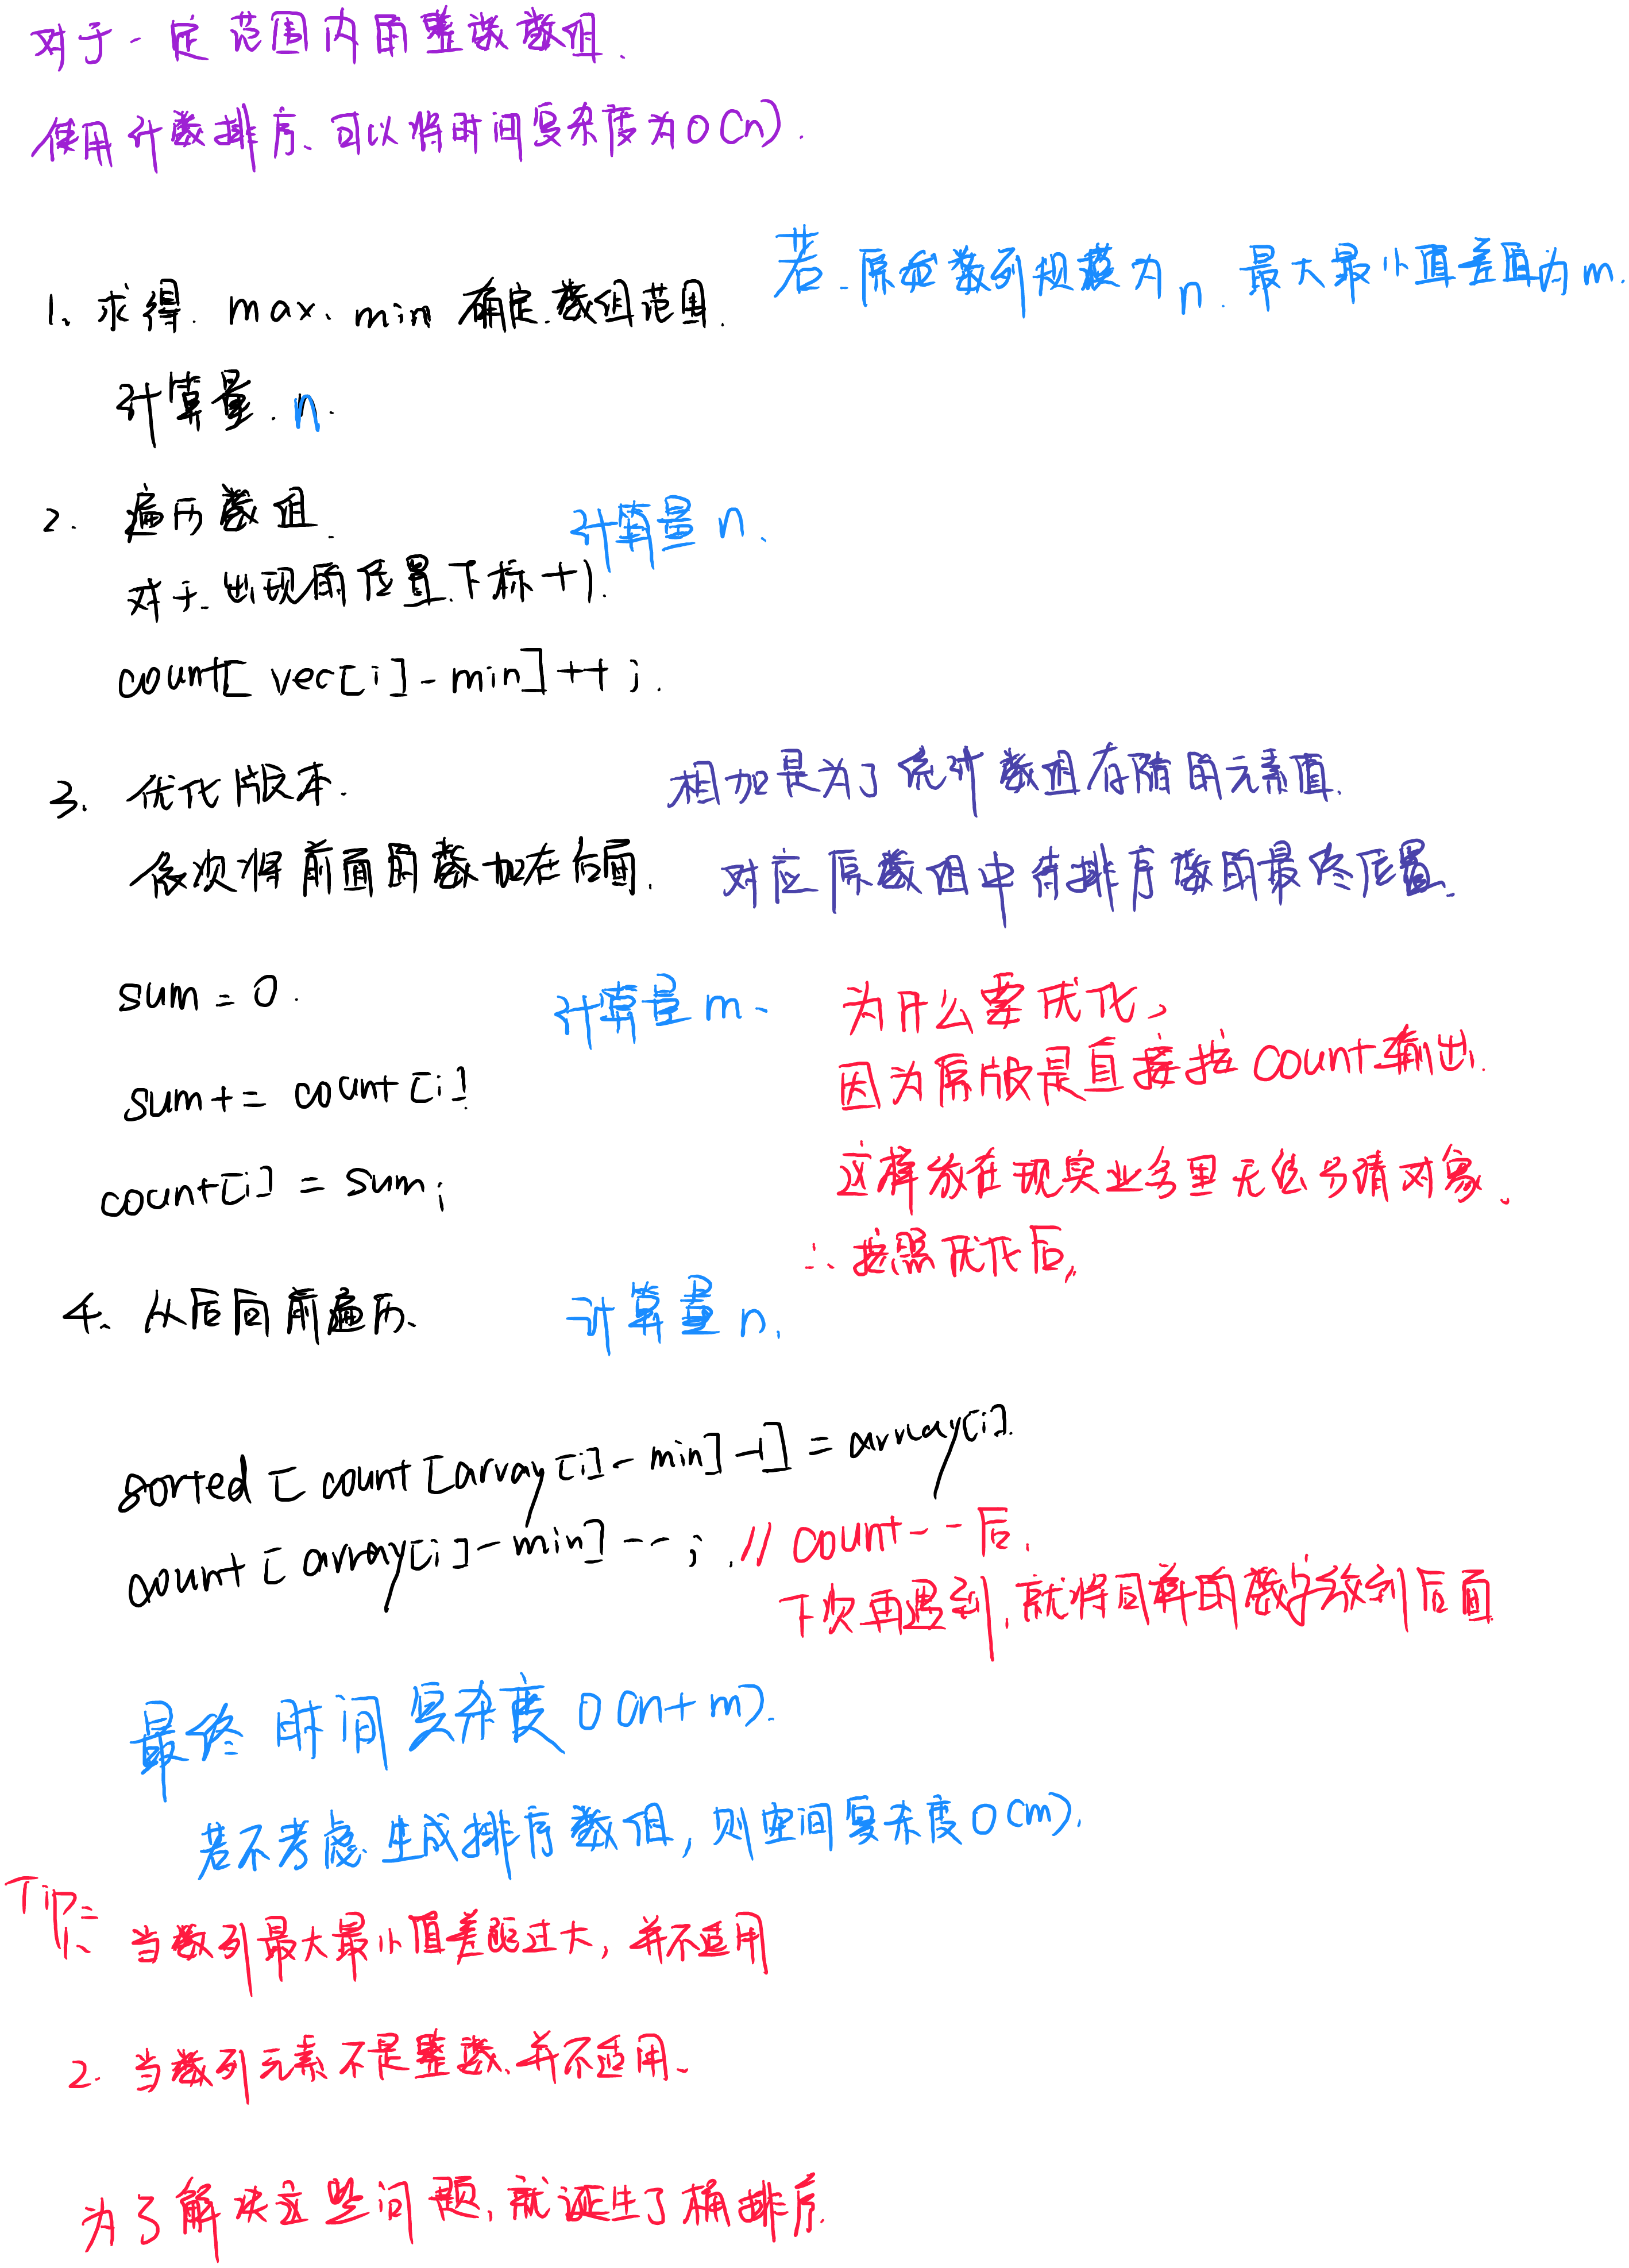 对于一定范围内的整数数组.
使用计数排序、可以将时间复杂度为O(n).
若 原始数列规模为n. 最大最小值差值为m.
1、求得. max、min 确定.数组范围.
计算量. n.
2. 遍历数组.
计算量 n、
对于.出现的位置.下标+1.
count[ vec[i] - min]++;.
3、优化版本.
相加是为了统计数组存储的元素值.
依次将前面的数加在后面.
对应原数组中待排序数的最终位置.
sum = 0.
计算量 m、
为什么要优化,
sum += count[i]
因为原版是直接按count输出.
count[i] = sum;
这样放在现实业务里无法分清对象、
∴ 按照优化后,
4、从后向前遍历、
计算量 n.
sorted [ count [array[i] - min] -1] = array[i].
count [ array[i] - min] --; . // count--后.
下次再遇到,就将同样的数字放到后面
最终 时间复杂度 O(n+m).
若不考虑.生成排序数组,则空间复杂度O(m),
Tip:
1、当数列最大最小值差距过大,并不适用
2. 当数列元素不是整数、并不适用、
为了解决这些问题,就诞生了桶排序.